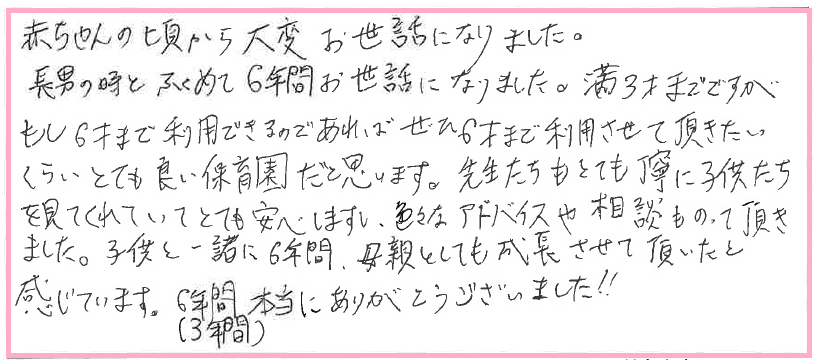 赤ちゃんの頃から大変お世話になりました。
長男の時とふくめて6年間お世話になりました。満3才までですが
もし6才まで利用できるのであれば ぜひ6才まで利用させて頂きたい
くらいとても良い保育園だと思います。先生たちもとても寧に子供たち
を見てくれていてとても安心しますし、色々なアドバイスや相談ものって頂き
ました。子供と一諸に6年間、母親としても成長させて頂いたと
感じています。6年間 本当にありがとうございました!!
(3年間)